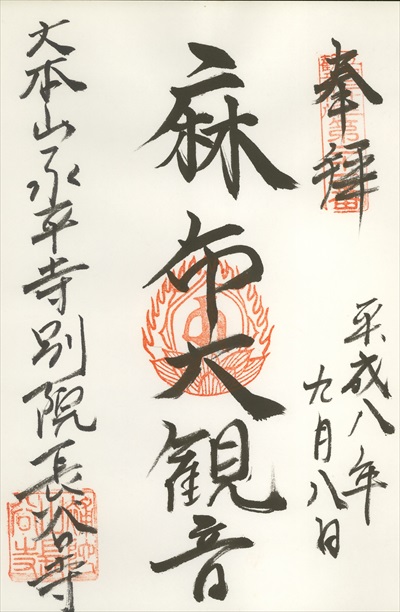 奉拝
平成八年
九月八日
麻布大観音
大本山永平寺別院長谷寺